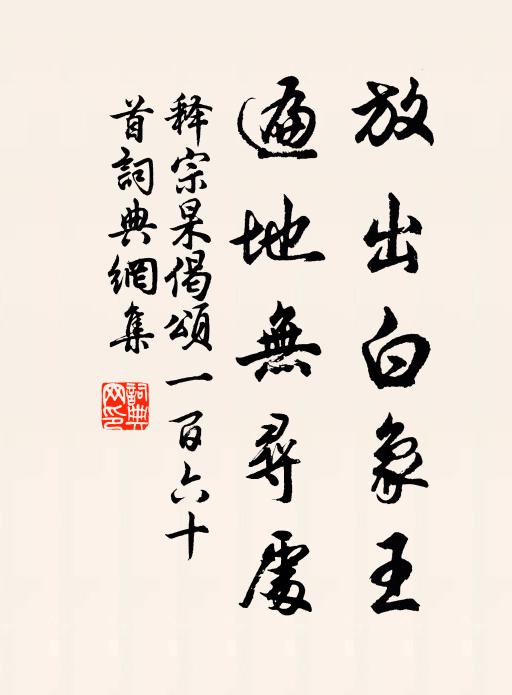 放出白象王
遍地無尋處
释宗杲偈頌一百六十
首詞典網集
詞典网印